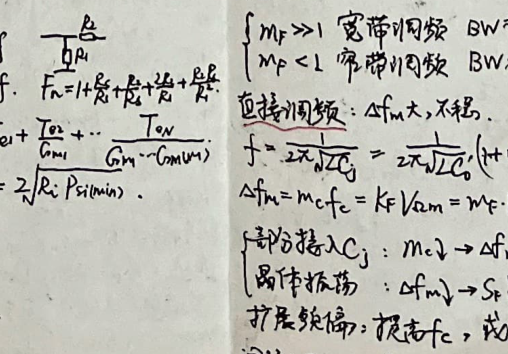 R₂
R₁
f. Fₙ=1+R₂/R₁+
T_{e2}/G_{m1} + ··· T_{eN}/G_{m}···G_{m(N-1)}
= 2√(Rᵢ P_{si(min)}) .
{ m_F >>1 宽带调频 BW
m_F < 1 窄带调频 BW
直接调频:Δfm大,不稳.
f = 1/(2π√(LCⱼ)) = 1/(2π√(LC₀)) · (1+
Δfm = m_c f_c = K_F V_{Ωm} = m_F ·
{ 部分接入Cⱼ : m_c↓ → Δf
晶体振荡 : Δfm↓ → S_F
扩展频偏:提高fc,或